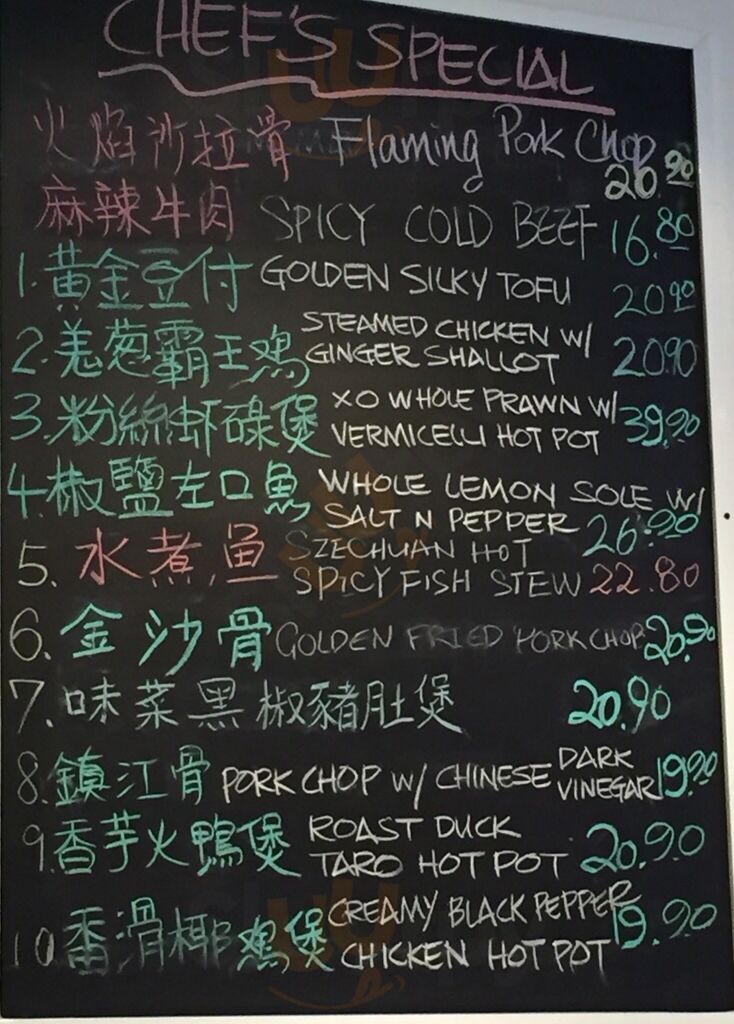 CHEF'S SPECIAL
火焰沙拉骨 Flaming Pork Chop 20.90
麻辣牛肉 SPICY COLD BEEF 16.80
1. 黄金豆付 GOLDEN SILKY TOFU 20.90
2. 羌葱霸王鸡 STEAMED CHICKEN W/ GINGER SHALLOT 20.90
3. 粉絲虾碌煲 XO WHOLE PRAWN W/ VERMICELLI HOT POT 39.90
4. 椒鹽左口魚 WHOLE LEMON SOLE W/ SALT N PEPPER 26.90
5. 水煮鱼 SZECHUAN HOT SPICY FISH STEW 22.80
6. 金沙骨 GOLDEN FRIED PORK CHOP 20.90
7. 味菜黑椒豬肚煲 20.90
8. 鎮江骨 PORK CHOP W/ CHINESE DARK VINEGAR 19.90
9. 香芋火鴨煲 ROAST DUCK TARO HOT POT 20.90
10. 香滑椰鸡煲 CREAMY BLACK PEPPER CHICKEN HOT POT 19.90